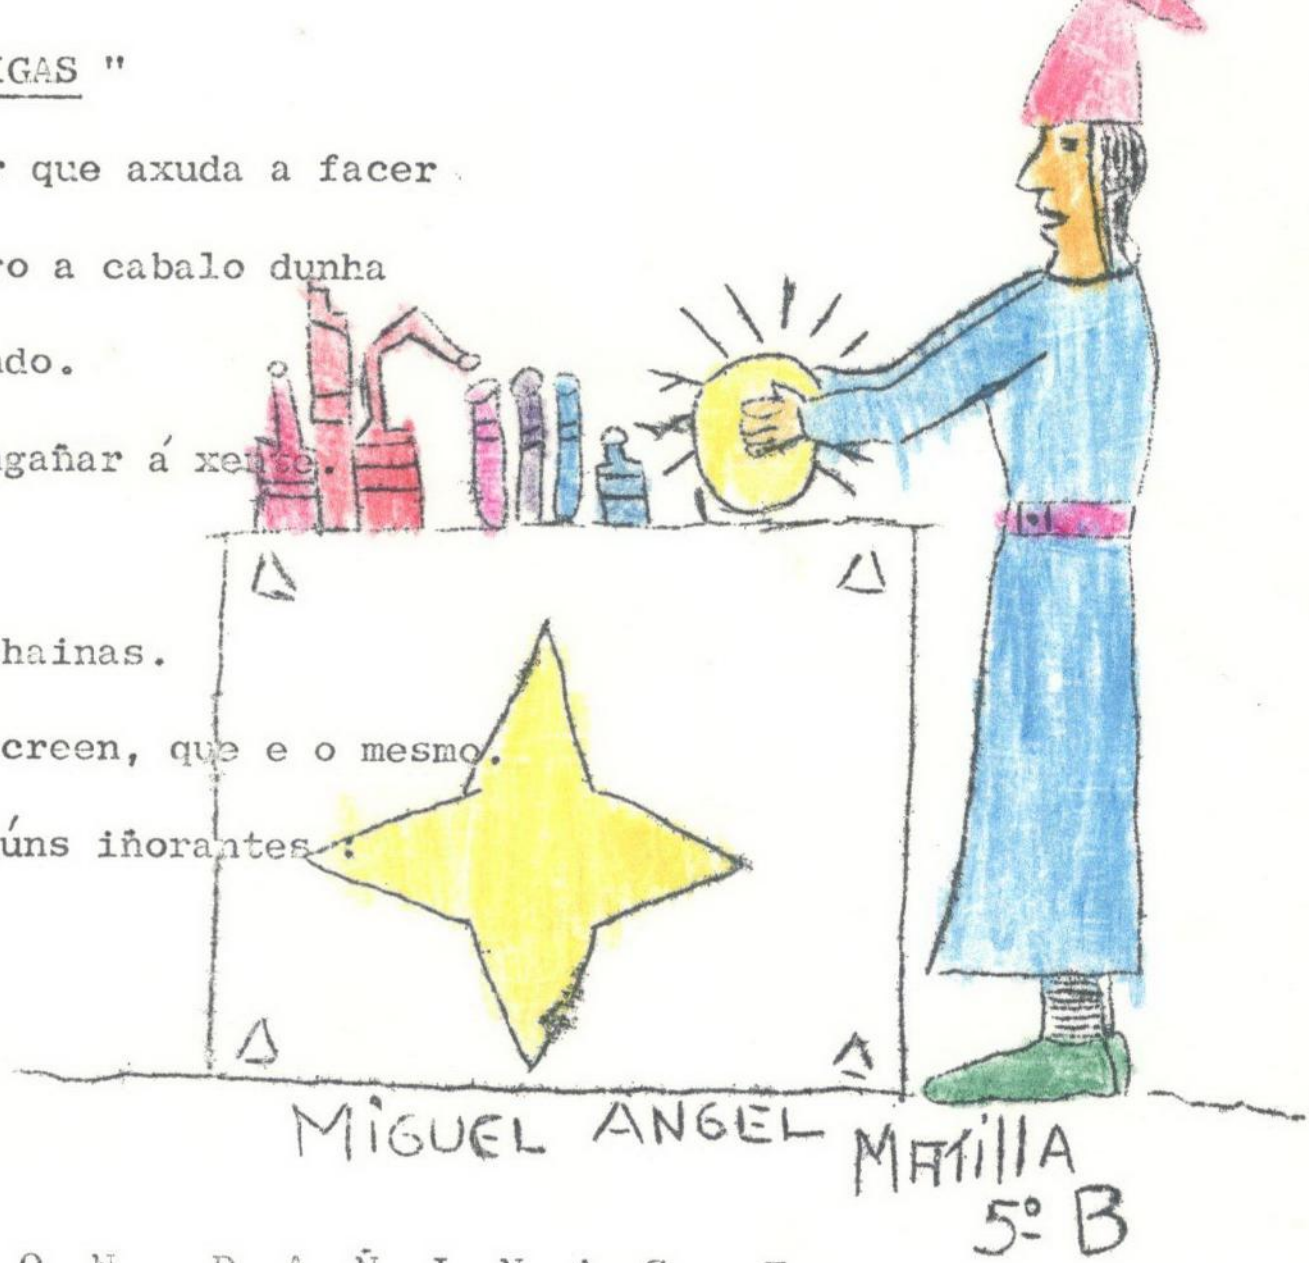 IGAS "
r que axuda a facer
ro a cabalo dunha
ndo.
gañar á xente.
hainas.
creen, que e o mesmo.
úns iñorantes :
MiGUEL ANGEL MATillA
5º B